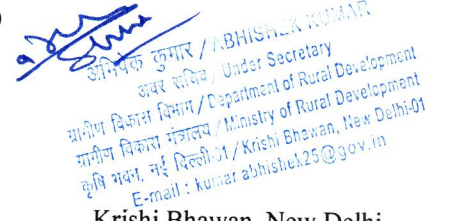 अभिषेक कुमार / ABHISHEK KUMAR
अवर सचिव / Under Secretary
ग्रामीण विकास विभाग / Department of Rural Development
ग्रामीण विकास मंत्रालय / Ministry of Rural Development
कृषि भवन, नई दिल्ली-01 / Krishi Bhawan, New Delhi-01
E-mail : kumar.abhishek25@gov.in
Krishi Bhawan, New Delhi